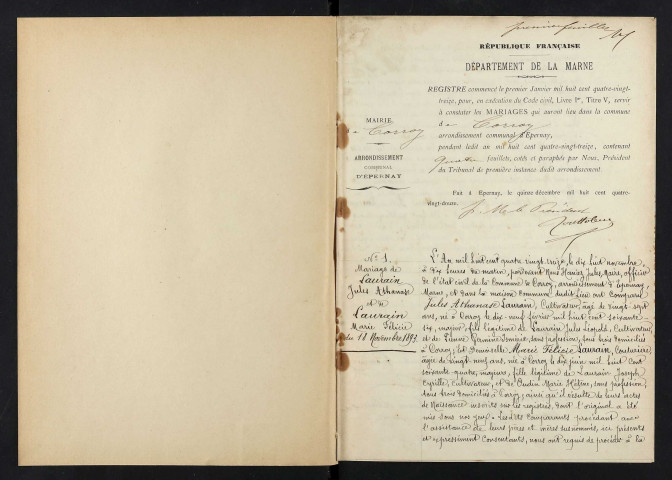 premier feuillet
RÉPUBLIQUE FRANÇAISE
DÉPARTEMENT DE LA MARNE
REGISTRE commencé le premier Janvier mil huit cent quatre-vingt-
treize, pour, en exécution du Code civil, Livre Ier, Titre V, servir
à constater les MARIAGES qui auront lieu dans la commune
de Corroy
arrondissement communal d'Epernay,
pendant ledit an mil huit cent quatre-vingt-treize, contenant
quatre feuillets, cotés et paraphés par Nous, Président
du Tribunal de première instance dudit arrondissement
Fait à Epernay, le quinze décembre mil huit cent quatre-
vingt-douze.
p. Mr le Président
MAIRIE
de Corroy
ARRONDISSEMENT
COMMUNAL
D'EPERNAY
N° 1.
Mariage de
Laurain
Jules Athanase
et de
Laurain
Marie Félicie
du 18 Novembre 1893.
L'An mil huit cent quatre vingt treize, le dix huit novembre,
à dix heures du matin, pardevant Nous Jules, Maire, officier
de l'état civil de la Commune de Corroy, arrondissement d'Epernay,
Marne, et dans la maison Commune dudit lieu ont comparu
Jules Athanase Laurain, Cultivateur, âgé de vingt sept
ans, né à Corroy le dix-neuf février mil huit cent soixante-
six, majeur, fils légitime de Laurain Jules Léopold, Cultivateur,
et de sans profession, tous trois domiciliés
à Corroy; et Demoiselle Marie Félicie Laurain, Couturière,
âgée de vingt-neuf ans, née à Corroy le dix juin mil huit cent
soixante quatre, majeure, fille légitime de Laurain Joseph
Cyrille, Cultivateur, et de Oudin Marie sans profession,
tous trois domiciliés à Corroy; ainsi qu'il résulte de leurs actes
de Naissance inscrits sur les registres, dont l'original a été
mis sous nos yeux. Lesdits Comparants procédant avec
l'assistance de leurs pères et mères susnommés, ici présents
et expressément Consentants, nous ont requis de procéder à la